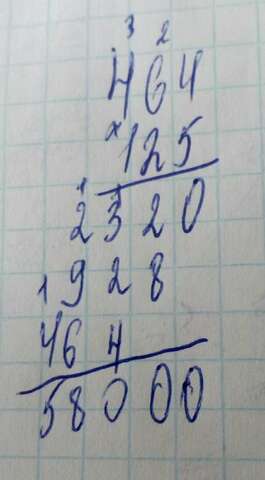 3 2
464
×125
1 1
2320
1 928
464
58000